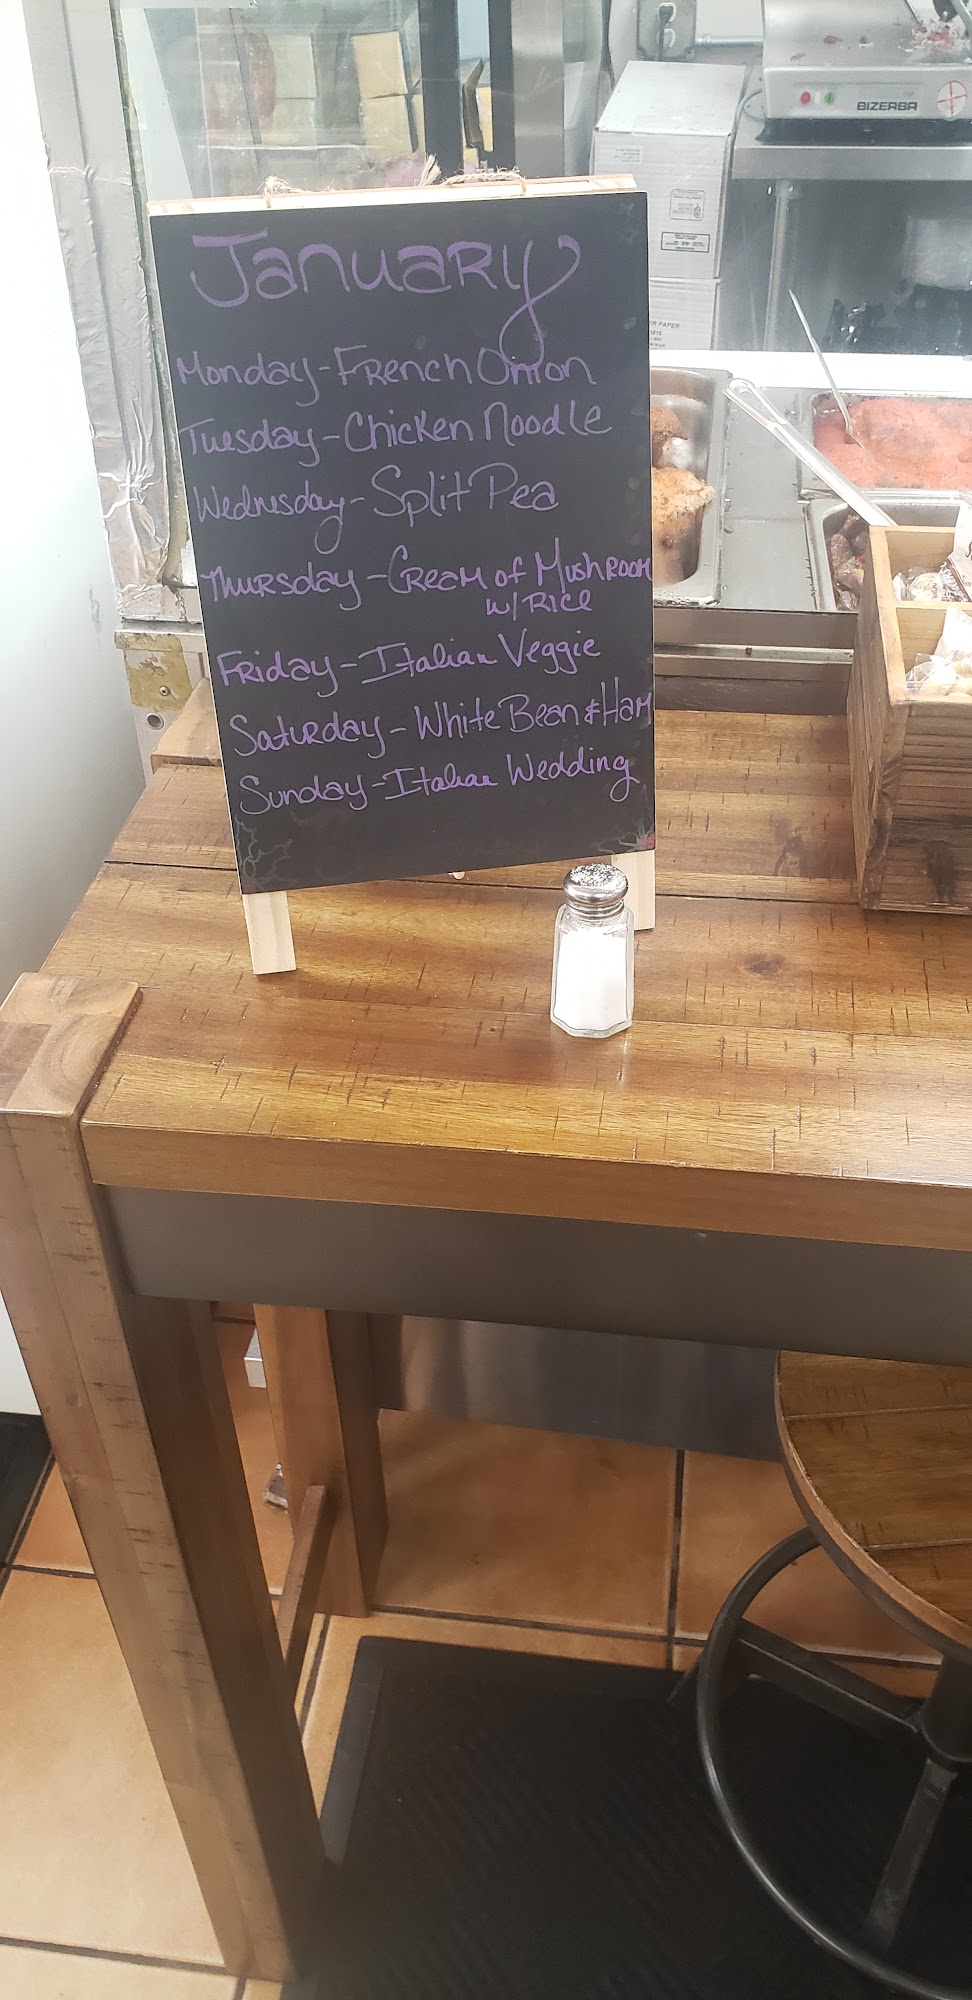 January
Monday - French Onion
Tuesday - Chicken Noodle
Wednesday - Split Pea
Thursday - Cream of Mushroom
w/ Rice
Friday - Italian Veggie
Saturday - White Bean & Ham
Sunday - Italian Wedding
BIZERBA
ER PAPER